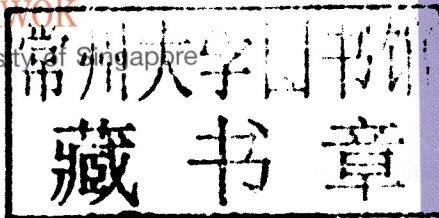 WOK
sity of Singapore
常州大学图书馆
藏书章